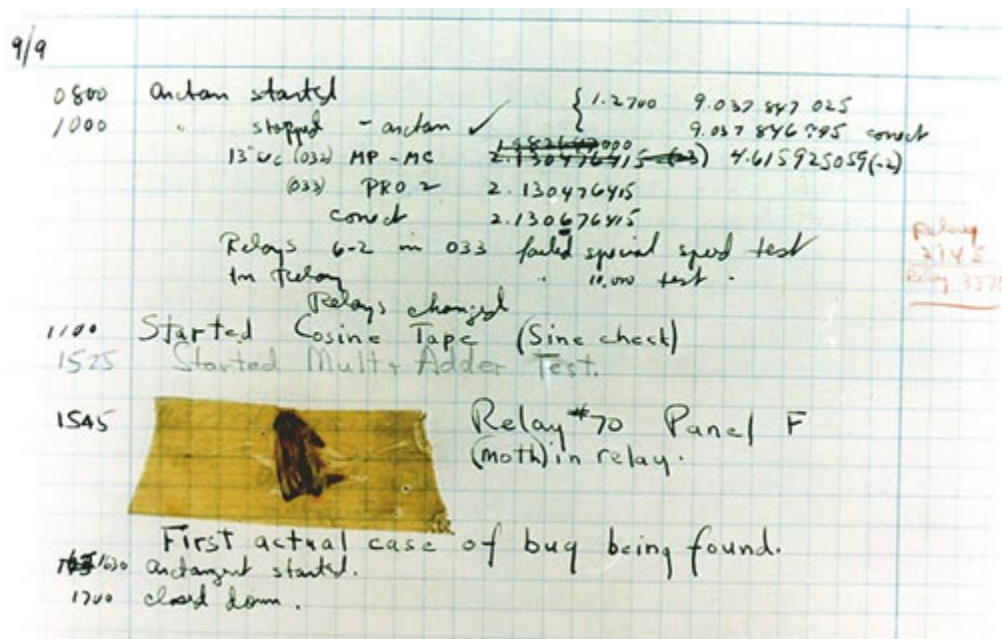 9/9
0800 arctan started { 1.2700 9.037 847 025
1000 " stopped - arctan ✓ 9.037 846 995 conect
13"uc (032) MP - MC 2.130476415 4.615925059(-2)
(033) PRO 2 2.130476415
conect 2.130676415
Relays 6-2 in 033 failed special speed test
In Relay " 10,000 test .
Relays changed
1100 Started Cosine Tape (Sine check)
1525 Started Mult + Adder Test.
1545 Relay #70 Panel F
(moth) in relay.
First actual case of bug being found.
1630 arctangent started.
1700 closed down.
Relay
Relay